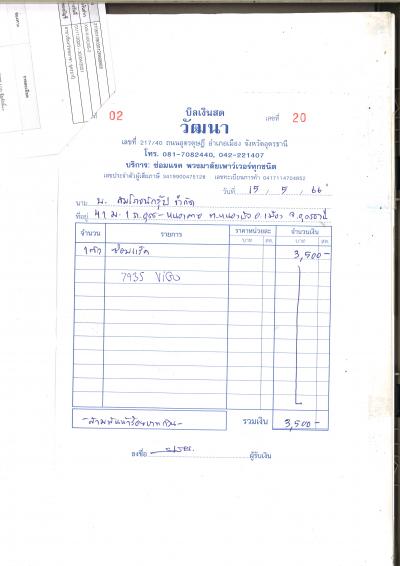 บิลเงินสด
เล่มที่ 02
เลขที่ 20
วัฒนา
เลขที่ 217/40 ถนนอุดรดุษฎี อำเภอเมือง จังหวัดอุดรธานี
โทร. 081-7082440, 042-221407
บริการ: ซ่อมแรค พวงมาลัยเพาว์เวอร์ทุกชนิด
เลขประจำตัวผู้เสียภาษี 3419900475128 เลขทะเบียนการค้า 0417114704852
วันที่ 15 / 5 / 66
นาม บ. จำกัด
ที่อยู่ 41 ม.1 ถ.อุดร-หนองคาย ต.หมากแข้ง อ.เมือง จ.อุดรธานี
จำนวน รายการ ราคาหน่วยละ จำนวนเงิน
บาท สต. บาท สต.
ซ่อมแร็ค 3,500-
7935 VIGO
-สามพันห้าร้อยบาทถ้วน- รวมเงิน 3,500-
ลงชื่อ ผู้รับเงิน